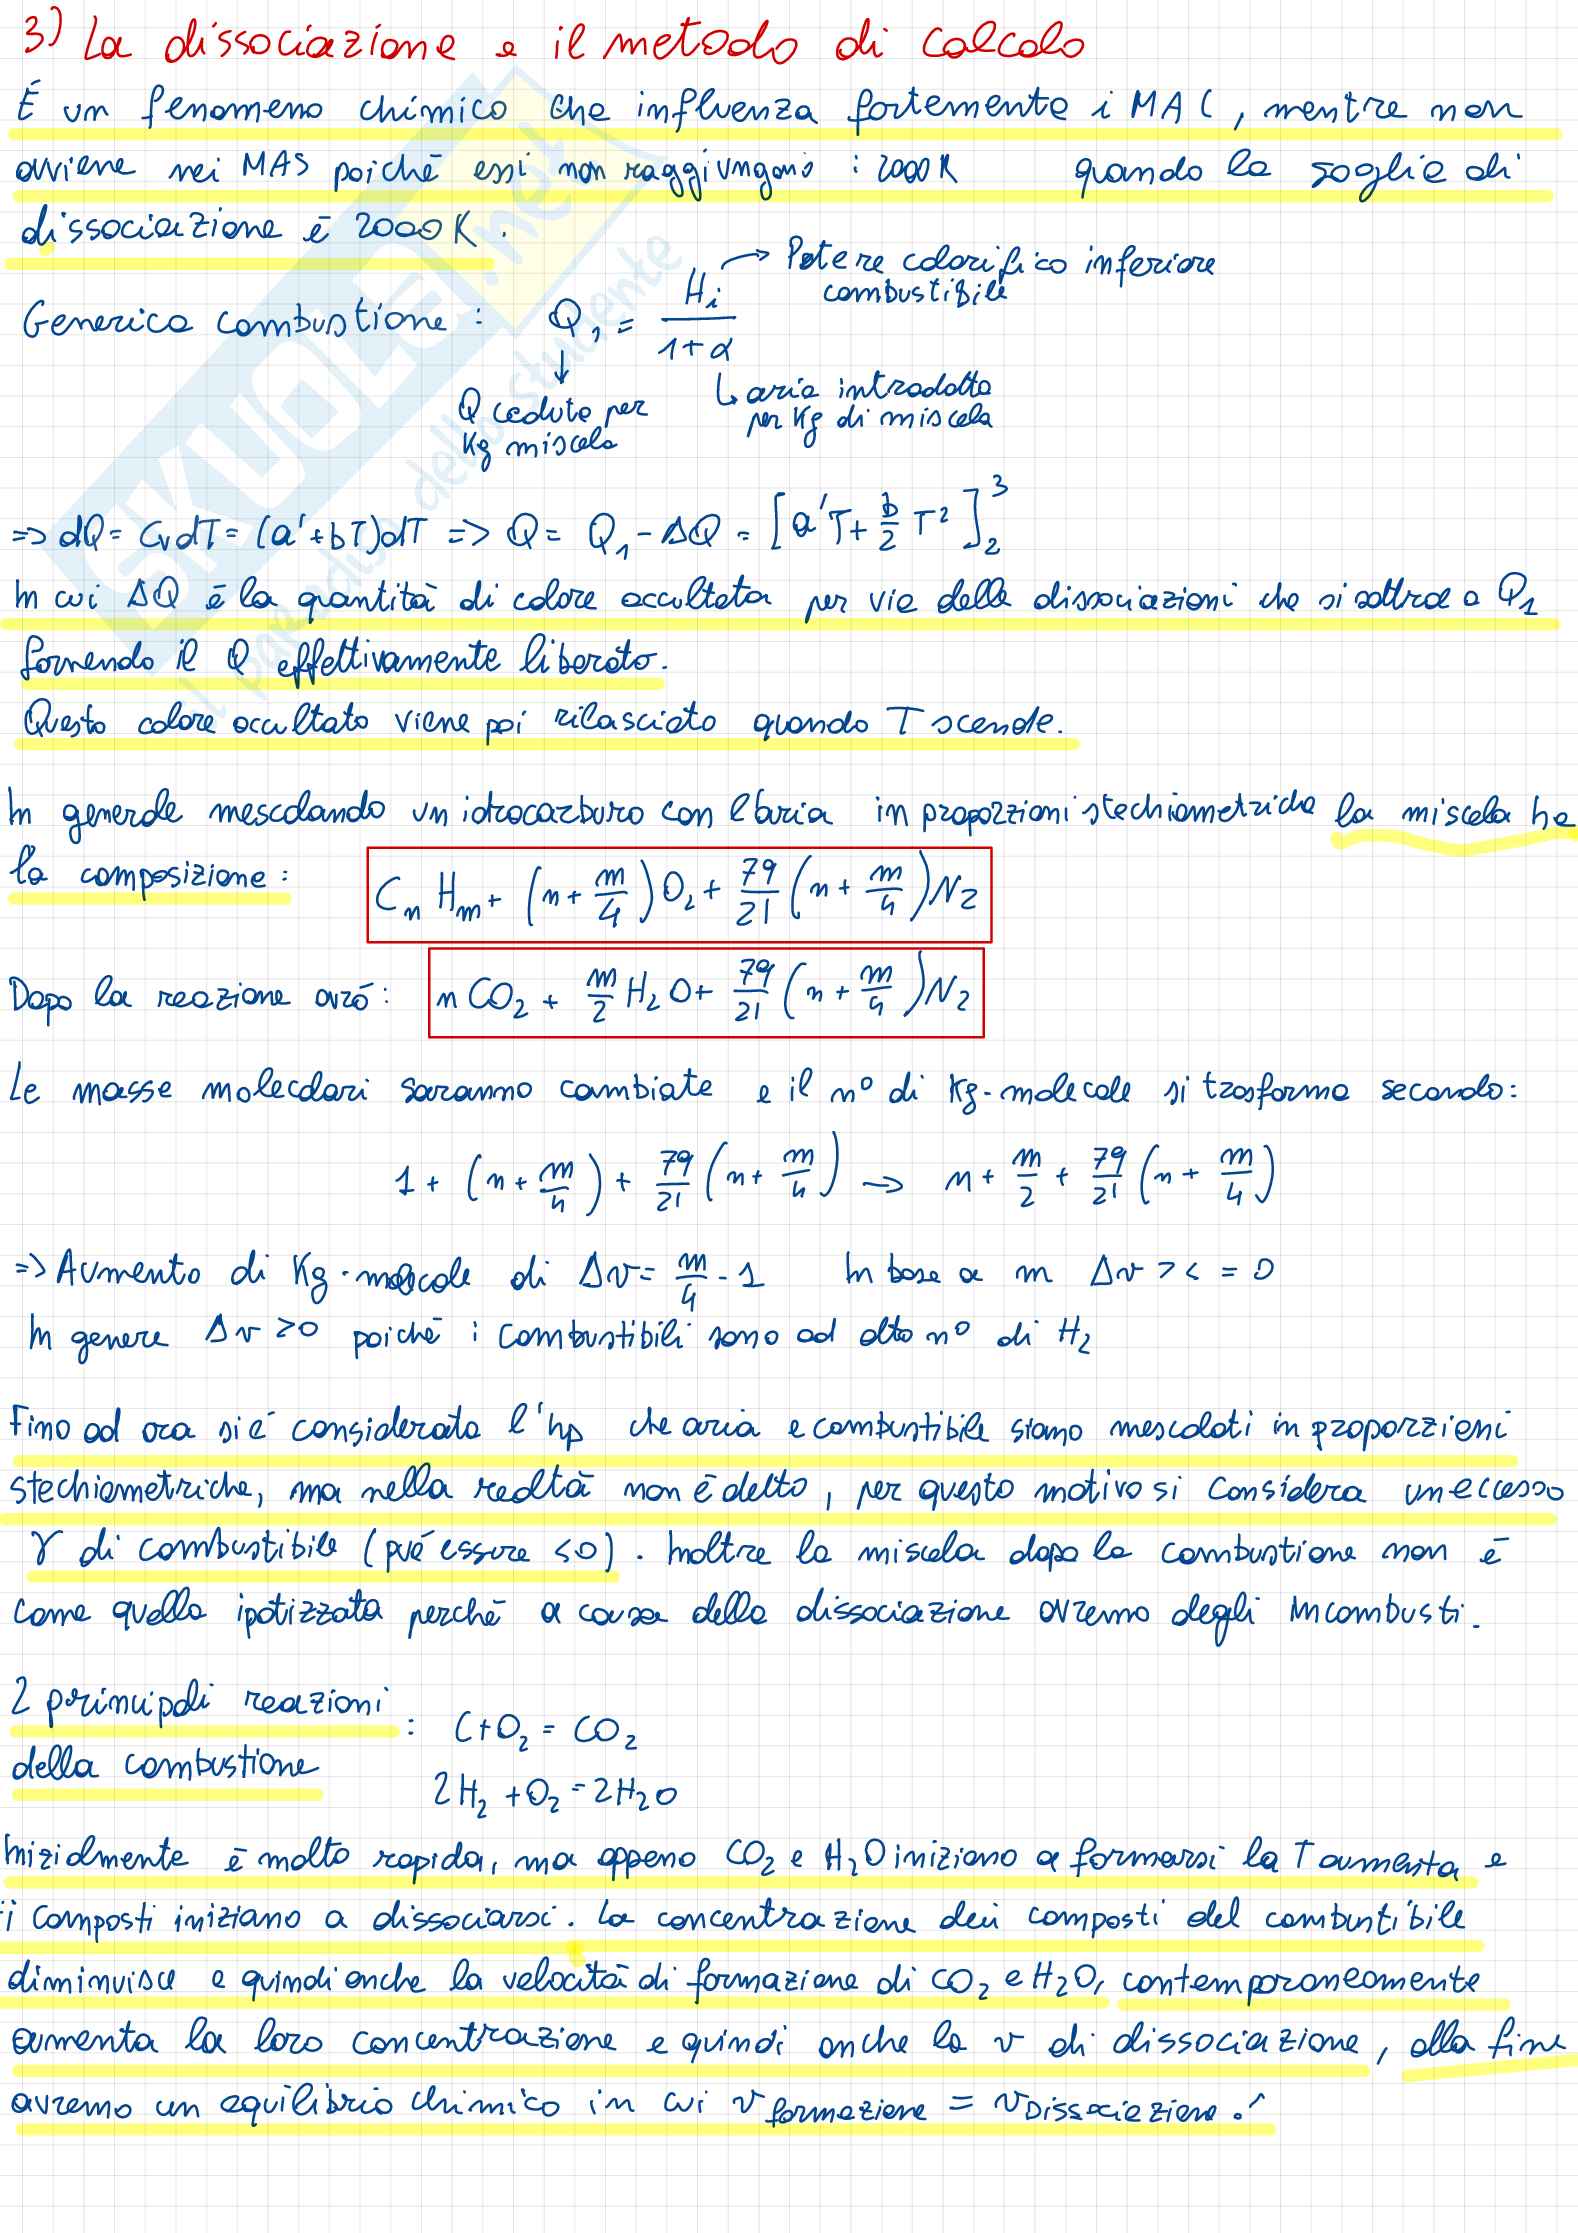 3) La dissociazione e il metodo di calcolo
È un fenomeno chimico che influenza fortemente i MAC, mentre non
avviene nei MAS poiché essi non raggiungono i 2000K quando la soglia di
dissociazione è 2000K.
Generica combustione: Q₁ = Hi / (1+α)
→ Potere calorifico inferiore
combustibile
↓ Q ceduto per
Kg miscela
↳ aria introdotta
per Kg di miscela
=> dQ = CvdT = (a'+bT)dT => Q = Q₁ - ΔQ = [a'T + b/2 T²]₂³
In cui ΔQ è la quantità di calore occultata per via delle dissociazioni che si sottrae a Q₁
fornendo il Q effettivamente liberato.
Questo calore occultato viene poi rilasciato quando T scende.
In generale mescolando un idrocarburo con l'aria in proporzioni stechiometriche la miscela ha
la composizione: CnHm + (n + m/4)O₂ + 79/21 (n + m/4)N₂
Dopo la reazione avrò: nCO₂ + m/2 H₂O + 79/21 (n + m/4)N₂
Le masse molecolari saranno cambiate e il n° di Kg-molecole si trasforma secondo:
1 + (n + m/4) + 79/21 (n + m/4) → n + m/2 + 79/21 (n + m/4)
=> Aumento di Kg-molecole di Δν = m/4 - 1 In base a m Δν > < = 0
In genere Δν >0 poiché i combustibili sono ad alto n° di H₂
Fino ad ora si è considerata l'hp che aria e combustibile siano mescolati in proporzioni
stechiometriche, ma nella realtà non è detto, per questo motivo si considera un eccesso
γ di combustibile (può essere <0). Inoltre la miscela dopo la combustione non è
come quella ipotizzata perché a causa della dissociazione avremo degli incombusti.
2 principali reazioni
della combustione : C+O₂ = CO₂
2H₂ + O₂ = 2H₂O
Inizialmente è molto rapida, ma appena CO₂ e H₂O iniziano a formarsi la T aumenta e
i composti iniziano a dissociarsi. La concentrazione dei composti del combustibile
diminuisce e quindi anche la velocità di formazione di CO₂ e H₂O, contemporaneamente
aumenta la loro concentrazione e quindi anche la v di dissociazione, alla fine
avremo un equilibrio chimico in cui v formazione = v Dissociazione.
SKUOLA.net
il paradiso dello studente